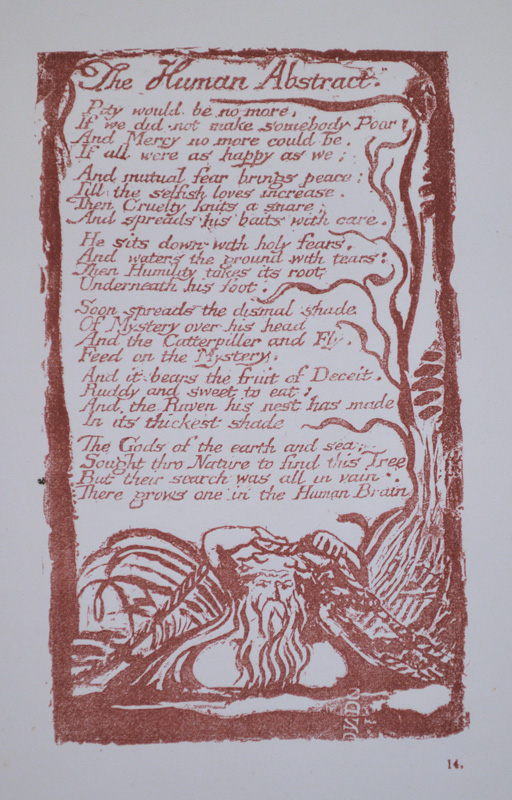 The Human Abstract.
Pity would be no more,
If we did not make somebody Poor:
And Mercy no more could be,
If all were as happy as we;
And mutual fear brings peace;
Till the selfish loves increase.
Then Cruelty knits a snare,
And spreads his baits with care
He sits down with holy fears,
And waters the ground with tears:
Then Humility takes its root
Underneath his foot.
Soon spreads the dismal shade
Of Mystery over his head
And the Catterpiller and Fly,
Feed on the Mystery.
And it bears the fruit of Deceit,
Ruddy and sweet to eat;
And the Raven his nest has made
In its thickest shade
The Gods of the earth and sea,
Sought thro Nature to find this Tree
But their search was all in vain:
There grows one in the Human Brain
14.